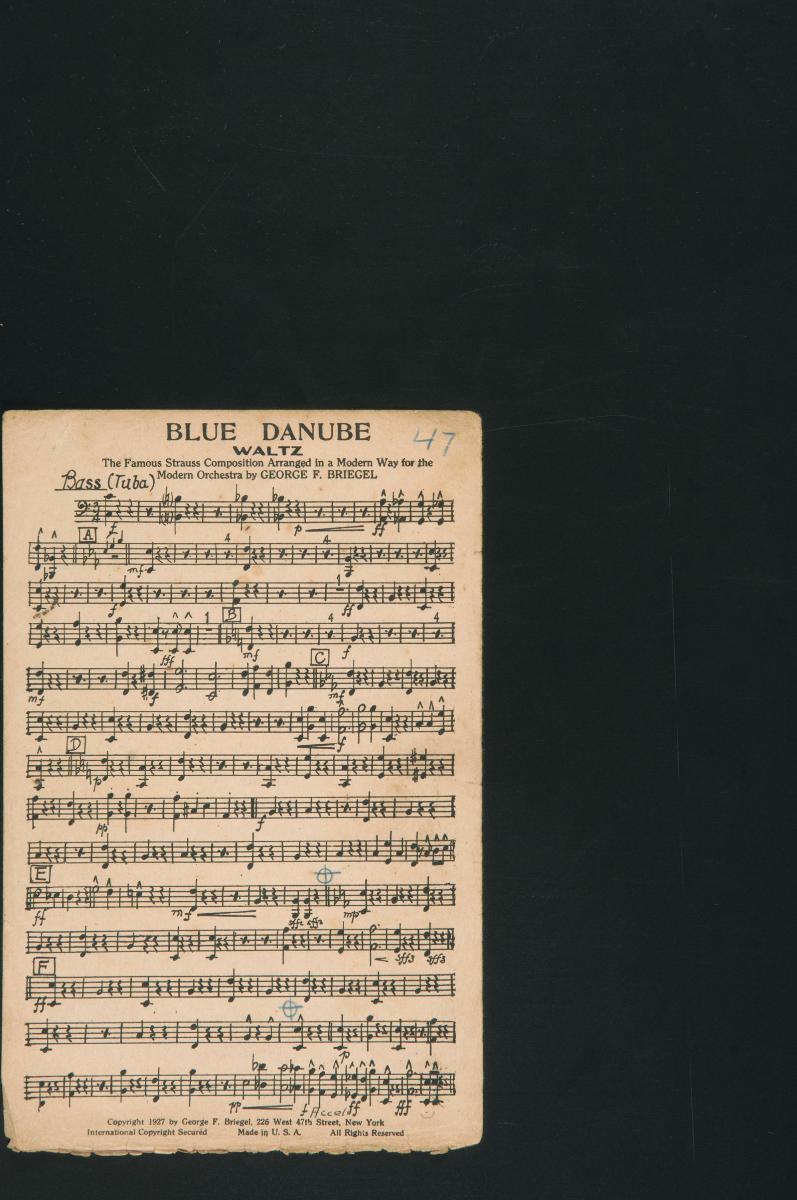 BLUE DANUBE
47
WALTZ
The Famous Strauss Composition Arranged in a Modern Way for the
Bass (Tuba) Modern Orchestra by GEORGE F. BRIEGEL
f p ff
A 4 4
mf
1
f ff
1 B 4 4
fff mf f
C
mf f mf
f
D
p
pp f
E
ff mf sffz sffz mp
sffz sffz
F
ff
p
pp f Accel ff fff
Copyright 1927 by George F. Briegel, 226 West 47th Street, New York
International Copyright Secured Made in U. S. A. All Rights Reserved